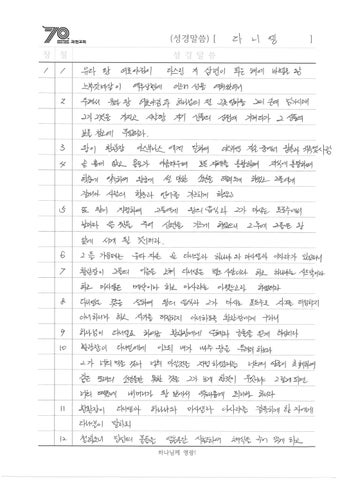 70 과천교회
(성경말씀) [ 다니엘 ]
장 절 성경말씀
1 1 유다 왕 여호야김이 다스린 지 삼 년이 되는 해에 바벨론 왕
느부갓네살이 예루살렘에 이르러 성을 에워쌌더니
2 주께서 유다 왕 여호야김과 하나님의 전 그릇 얼마를 그의 손에 넘기시매
그가 그것을 가지고 시날 땅 자기 신들의 신전에 가져다가 그 신들의
보물 창고에 두었더라
3 왕이 환관장 아스부나스에게 말하여 이스라엘 자손 중에서
4 곧 흠이 없고 용모가 아름다우며 모든 지혜를 통찰하며 지식에 통달하며
학문에 익숙하여 왕궁에 설 만한 소년을 데려오게 하였고 그들에게
갈대아 사람의 학문과 언어를 가르치게 하였고
5 또 왕이 지정하여 그들에게 왕의 음식과 그가 마시는 포도주에서
날마다 쓸 것을 주어 삼년을 기르게 하였으니 그 후에 그들은 왕
앞에 서게 될 것이더라
6 그들 가운데는 유다 자손 곧 다니엘과 하나냐와 미사엘과 아사랴가 있었더니
7 환관장이 그들의 이름을 고쳐 다니엘은 벨드사살이라 하고 하나냐는 사드락이라
하고 미사엘은 메삭이라 하고 아사랴는 아벳느고라 하였더라
8 다니엘은 뜻을 정하여 왕의 음식과 그가 마시는 포도주로 자기를 더럽히지
아니하리라 하고 자기를 더럽히지 아니하도록 환관장에게 구하니
9 하나님이 다니엘로 하여금 환관장에게 은혜와 긍휼을 얻게 하신지라
10 환관장이 다니엘에게 이르되 내가 내 주 왕을 두려워하노라
그가 너희 먹을 것과 너희 마실 것을 지정하셨거늘 너희의 얼굴이 초췌하여
같은 또래의 소년들만 못한 것을 그가 보게 할 것이 무엇이냐 그렇게 되면
너희 때문에 내 머리가 왕 앞에서 위태롭게 되리라 하니라
11 환관장이 다니엘과 하나냐와 미사엘과 아사랴를 감독하게 한 자에게
다니엘이 말하되
12 청하오니 당신의 종들을 열흘 동안 시험하여 채식을 주어 먹게 하고
하나님께 영광!